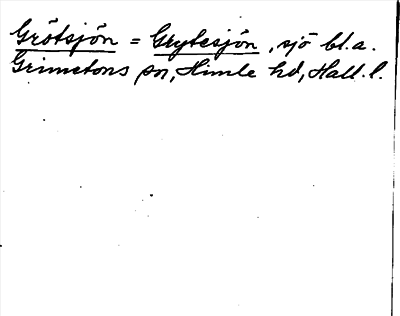 Grötsjön = Grytesjön, sjö bl.a.
Grimetons sn, Himle hd, Hall. l.